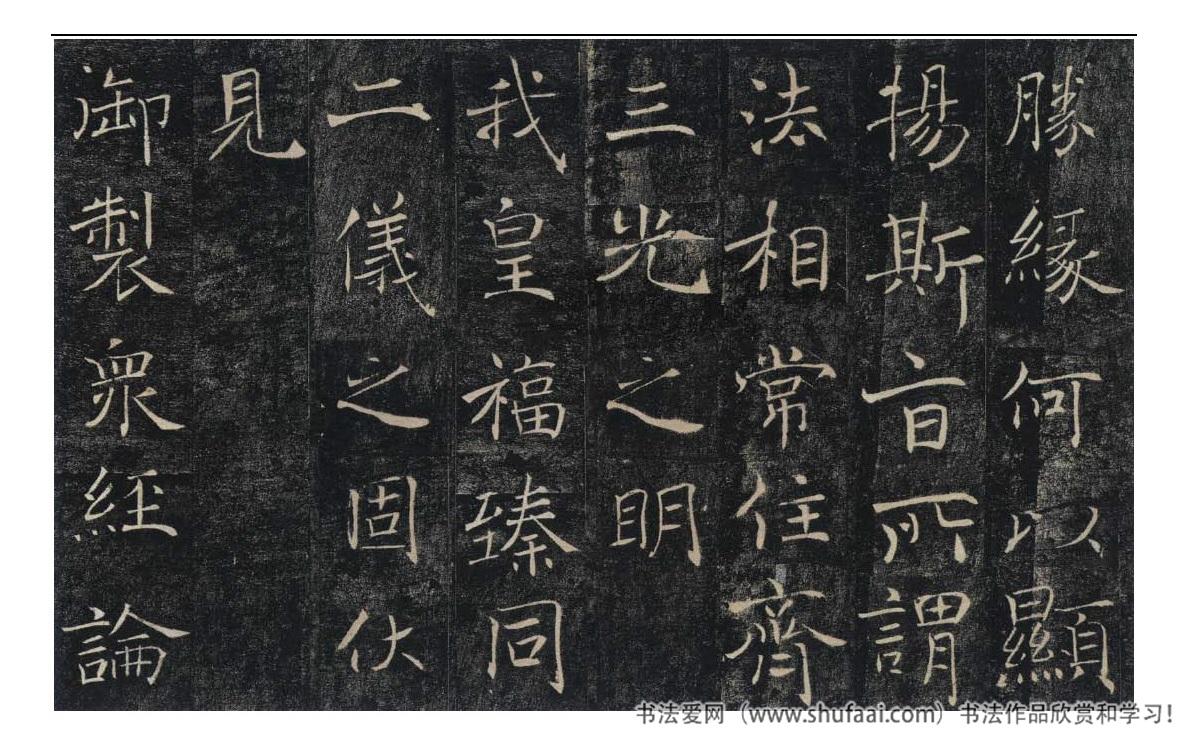 勝緣何以顯
揚斯旨所謂
法相常住齊
三光之明
我皇福臻同
二儀之固伏
見
御製衆經論
书法爱网（www.shufaai.com）书法作品欣赏和学习！